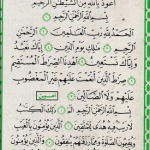 أعوذ بالله من الشيطن الرجيم
بسم الله الرحمن الرحيم
الحمد لله رب العلمين الرحمن
الرحيم ملك يوم الدين إياك نعبد
وإياك نستعين اهدنا الصراط المستقيم
صراط الذين أنعمت عليهم غير المغضوب
عليهم ولا الضالين
بسم الله الرحمن الرحيم
الم ذلك الكتب
لا ريب فيه هدى للمتقين الذين يؤمنون بالغيب